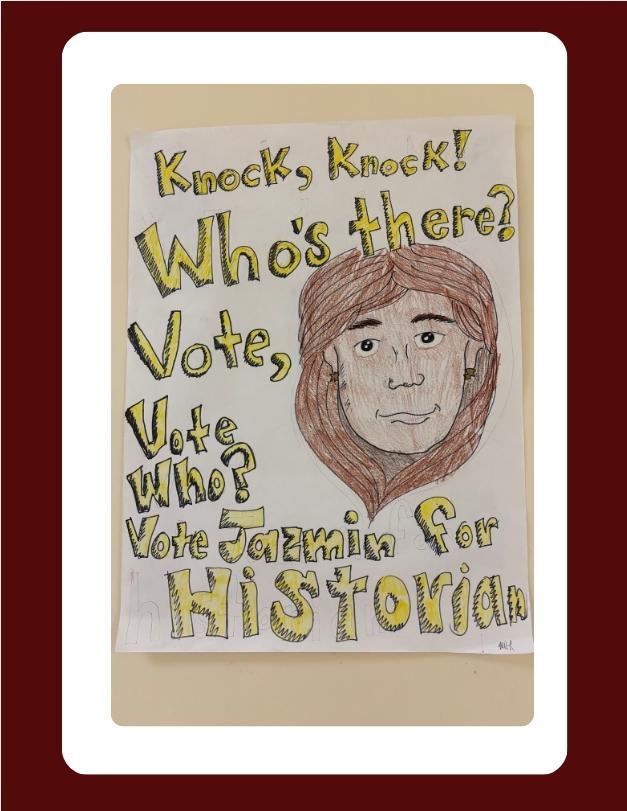 Knock, Knock!
Who's there?
Vote,
Vote
Who?
Vote Jazmin for
Historian